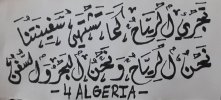 تَجْرِي الرِّيَاحُ كَمَا تَشْتَهِي سَفِينَتُنَا
نَحْنُ الرِّيَاحُ وَ نَحْنُ البَحْرُ وَ السُّفُنُ
-4 ALGERIA-